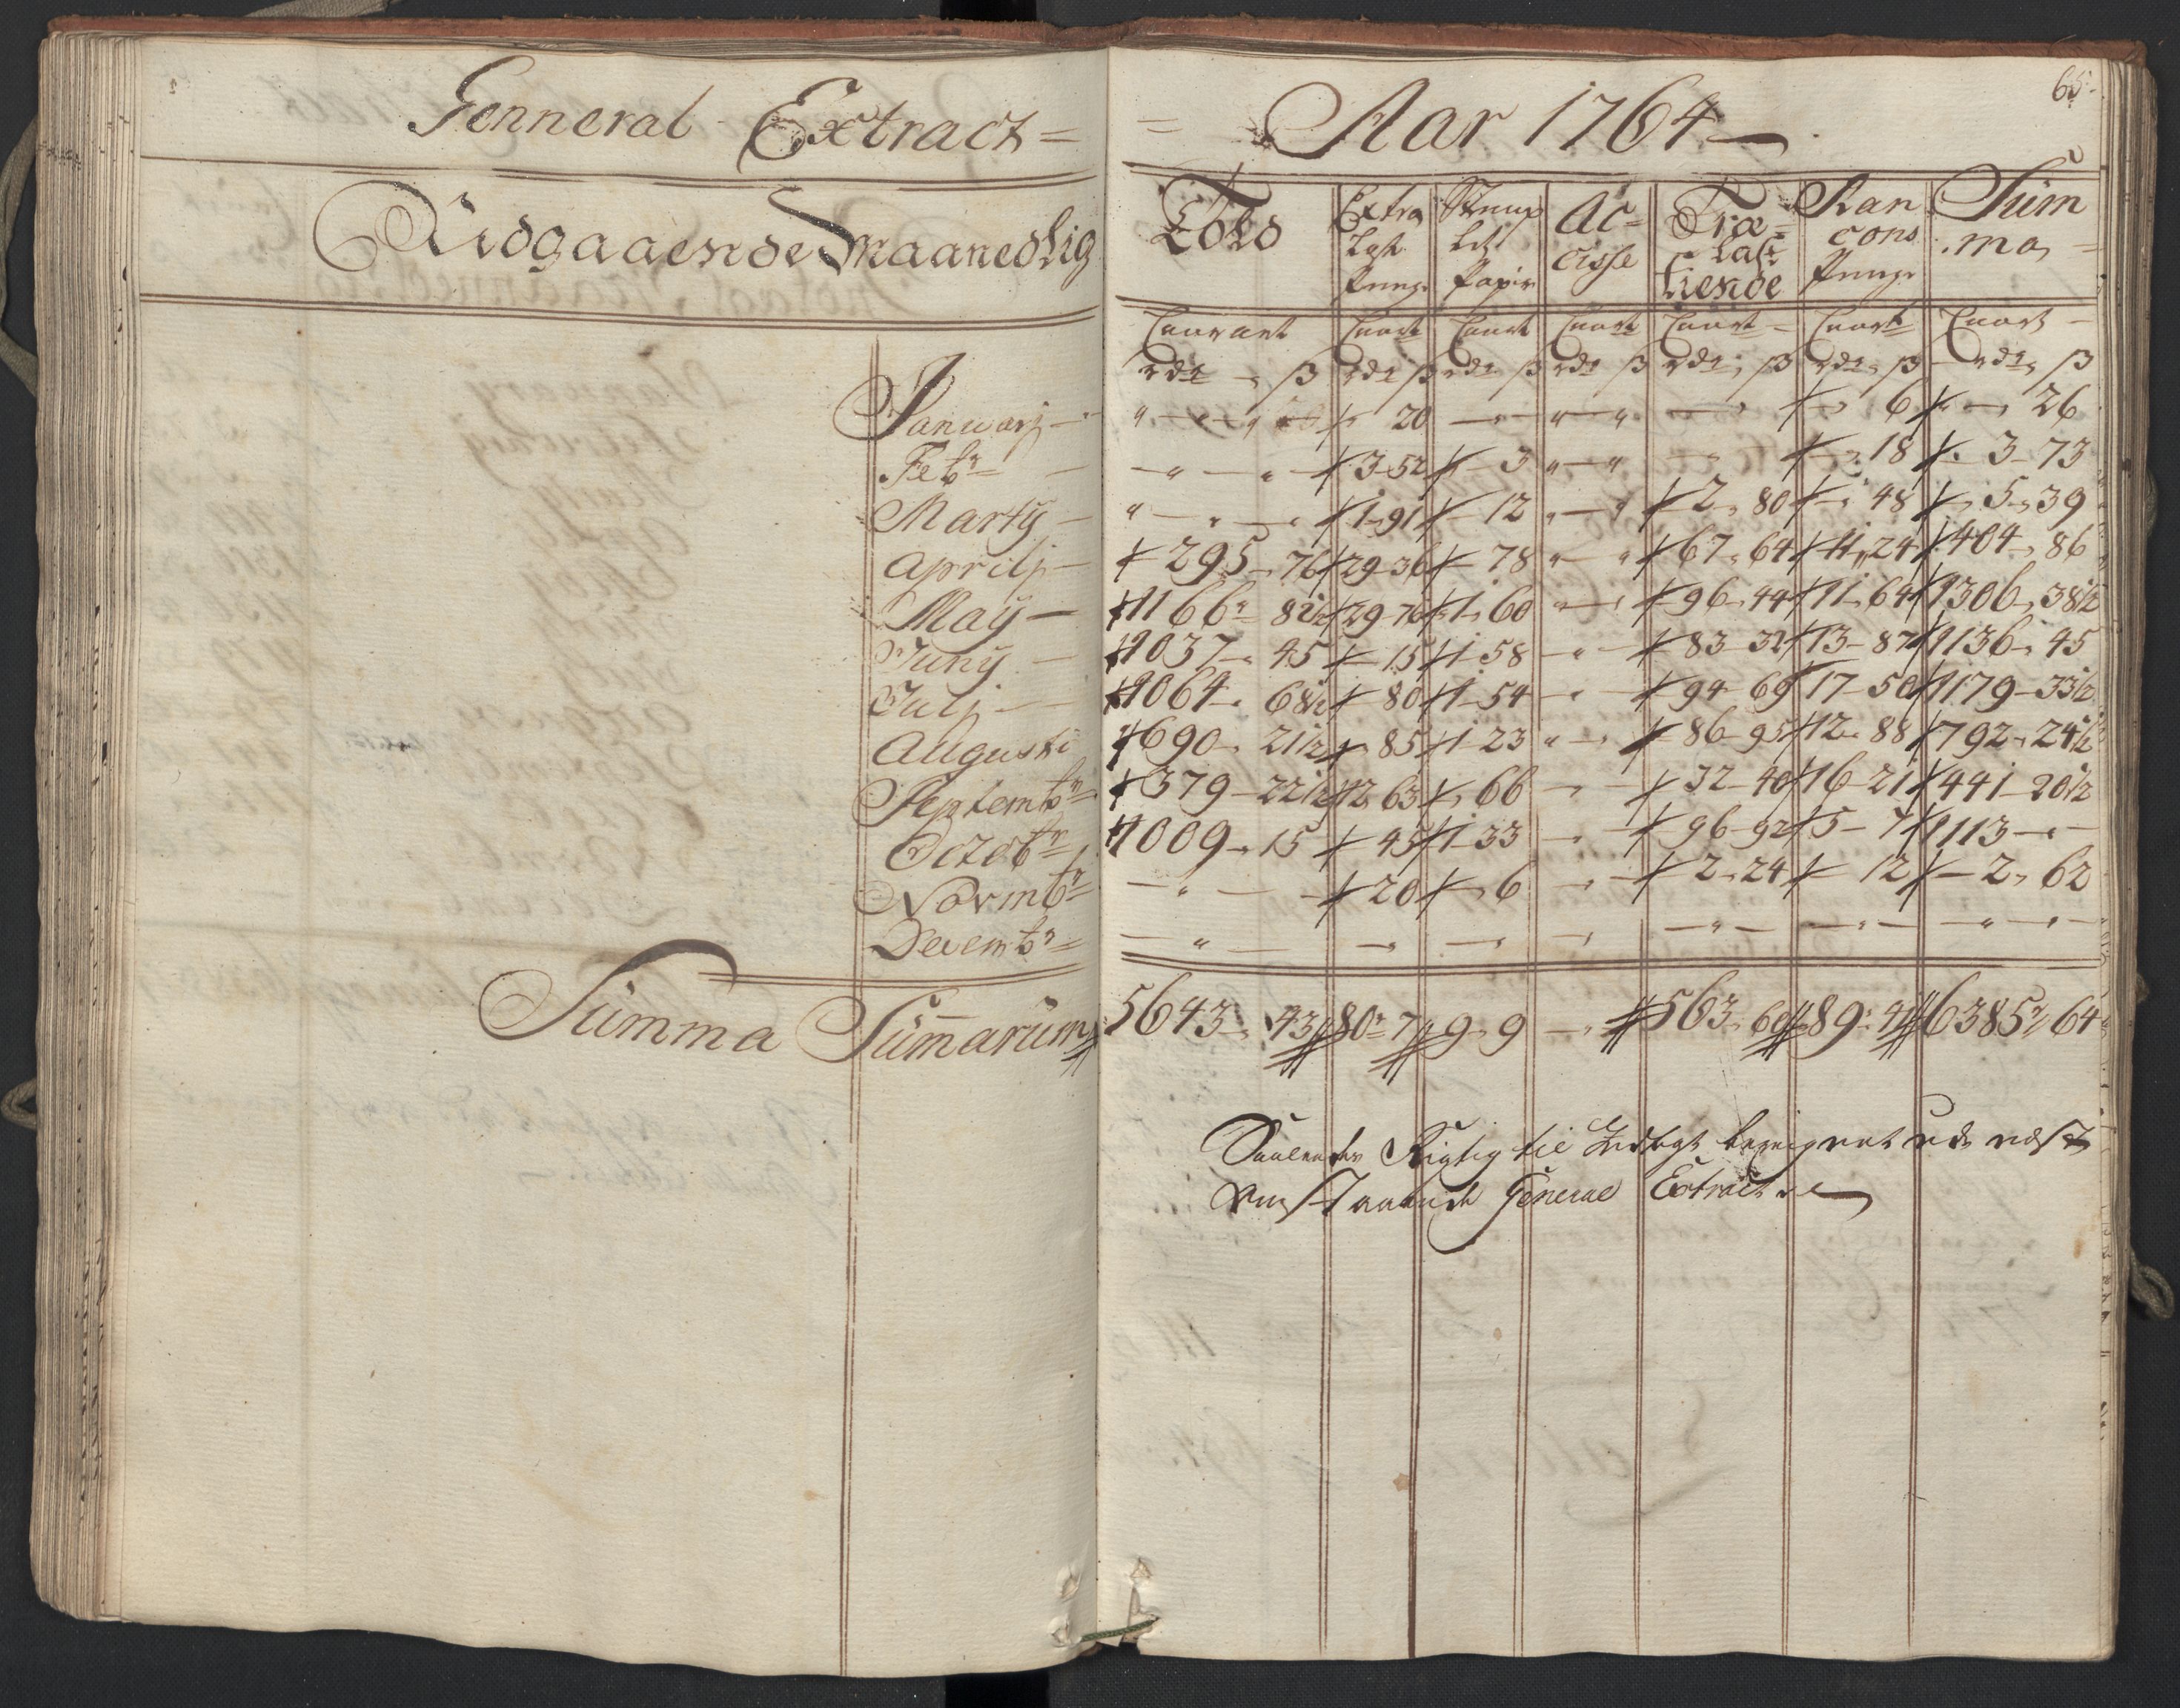 65.
Genneral Extract = = Aar 1764
Udgaaende Maanedlig
Told | Extra Last Penge | Stemp let Papir | Ac= cisse | Træ= last Tiende | Ran cons Penge | Sum ma
Courant | Court | Court | Court | Court | Court | Court
rdr ß | rdr ß | rdr ß | rdr ß | rdr ß | rdr ß | rdr ß
Januarj — | " — " | 20 | — | " " | — | 6 | 26
Febr — | — " — " | 3-52 | 3 | " — " | — | 18 | 3-73
Martij — | " — " | 1-91 | 12 | " — " | 2-80 | 48 | 5-39
Aprilj — | 295-76 | 29-36 | 78 | " — " | 67-64 | 11-24 | 404-86
May — | 1166-82 1/2 | 29-76 | 1-60 | " — | 96-44 | 11-64 | 1306-38 1/2
Juny — | 1037-45 | 15 | 1-58 | — " — | 83-32 | 13-87 | 1136-45
Julj — | 1064-68 1/2 | 80 | 1-54 | — | 94-69 | 17-50 | 1179-33 1/2
Augusti | 690-21 1/2 | 85 | 1-23 | " — | 86-95 | 12-88 | 792-24 1/2
Septembr | 379-22 1/2 | 12-63 | 66 | — | 32-40 | 16-21 | 441-20 1/2
Octobr | 1009-15 | 45 | 1-33 | — | 96-92 | 5-7 | 1113 —
Novembr | — " — | 20 | 6 | — | 2-24 | 12 | 2-62
Decembr | — " — | — | — | — | — " — | — " — | — " —
Summa Summarum | 5643-43 | 80-7 | 9-9 | — | 563-60 | 89-41 | 6385-64
Saaledes Rigtig til Indtægt beregnet udi næst
General Extract